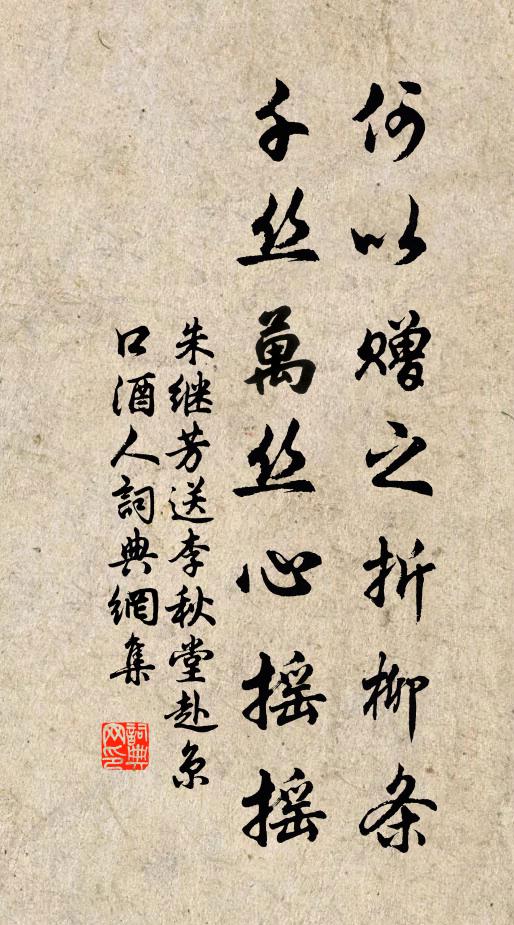 何以赠之折柳条
千丝萬丝心摇摇
朱继芳送李秋堂赴京
口酒人詞典網集
詞典
网印